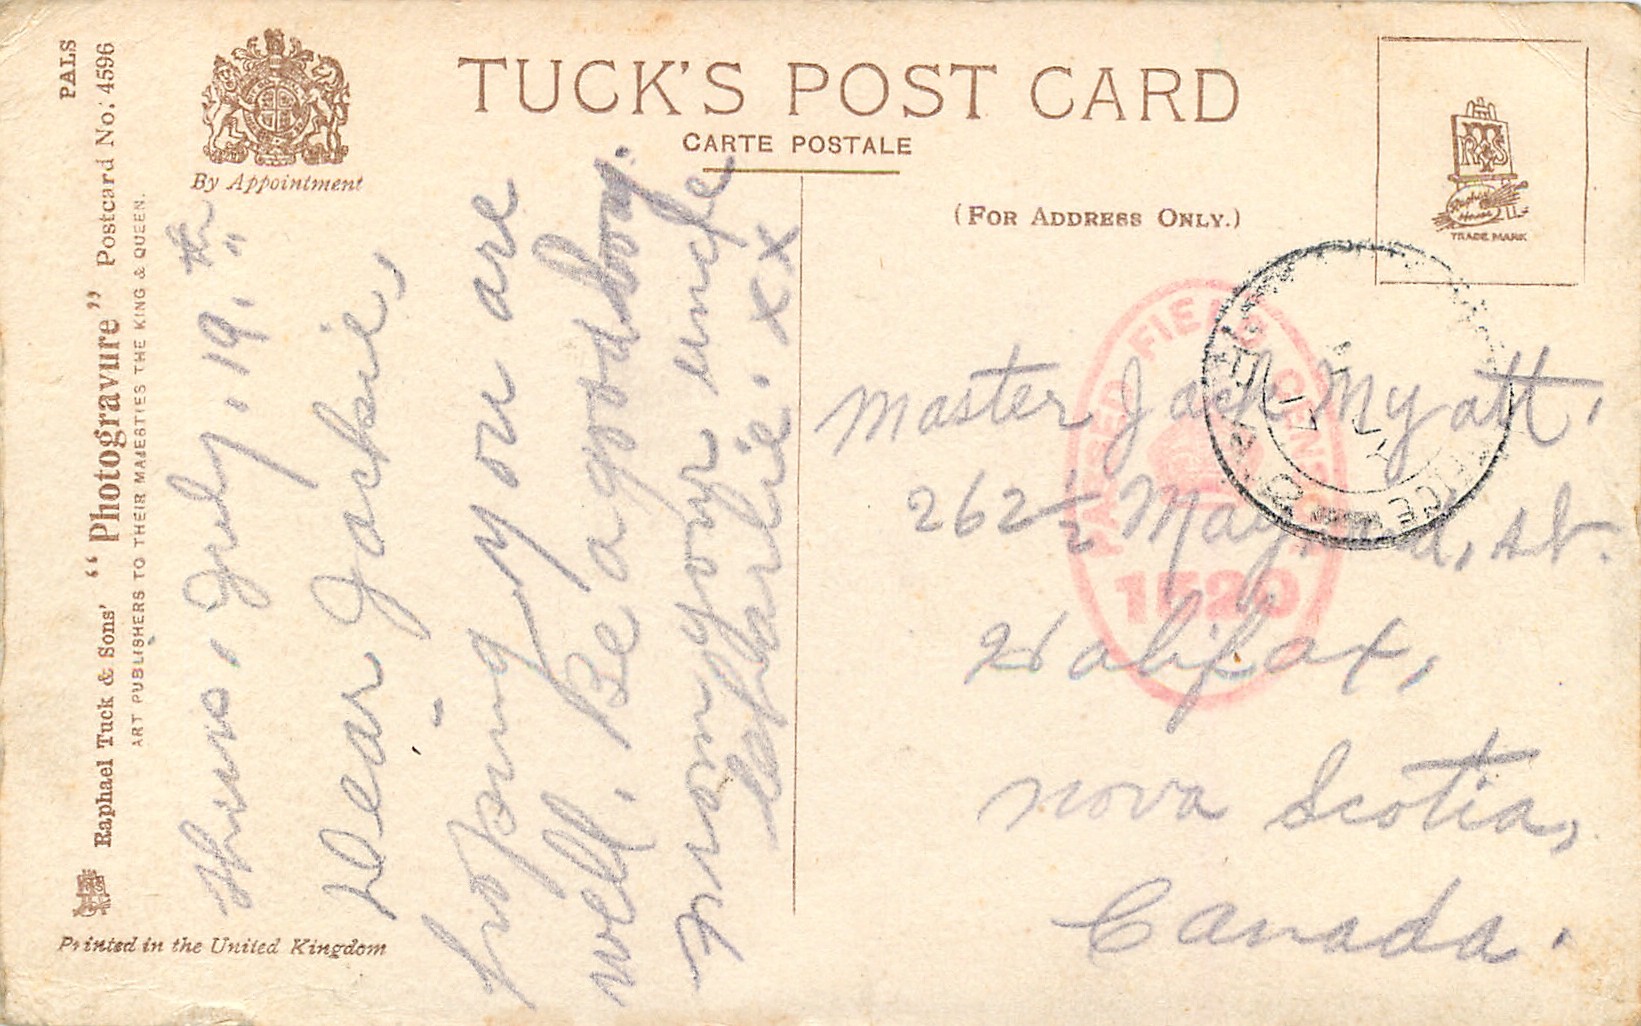 TUCK'S POST CARD
CARTE POSTALE
(FOR ADDRESS ONLY.)
TRADE MARK
By Appointment
PALS
Raphael Tuck & Sons' "Photogravure" Postcard No: 4596
ART PUBLISHERS TO THEIR MAJESTIES THE KING & QUEEN.
Printed in the United Kingdom
Thurs, July, 19. th
Dear Jackie,
hoping you are
well. Be a good boy.
From your uncle
Charlie. xx
PASSED FIELD CENSOR
1520
Master Jack Myatt,
262½ Maynard, St.
Halifax,
Nova Scotia,
Canada.